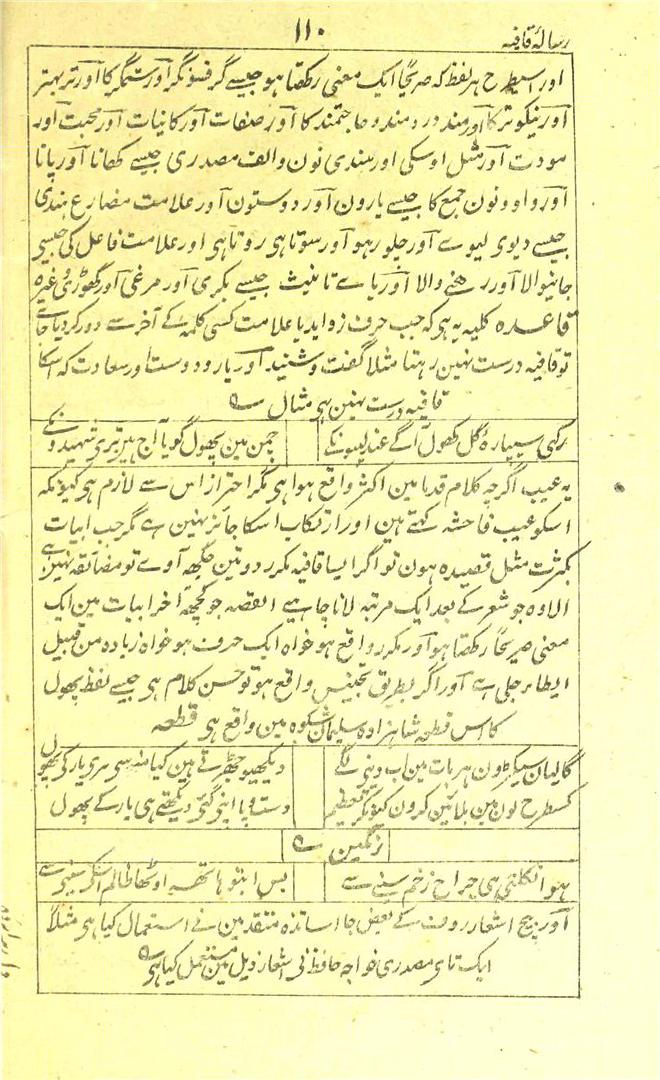 رسالۂ قافیہ
۱۱۰
اور اسیطرح ہر لفظ کہ صریحاً ایک معنی رکھتا ہو جیسے گر فسونگر اور ستمگر کا اور تر بہتر
اور نیکوتر کا اور مند دردمند و حاجتمند کا اور صفات اور کائنات اور محبت اور
مودت اور مثل اوسکی اور ہندی نون و الف مصدری جیسے کھانا اور پانا
اور واو و نون جمع کا جیسے یارون اور دوستون اور علامت مضارع ہندی
جیسے دیوی لیوے اور چلو رہو اور سوتا ہی روتا ہی اور علامت فاعل کی جیسی
جانیوالا اور رہنے والا اور یاے تانیث جیسے بکری اور مرغی اور گھوڑی وغیرہ
قاعدہ کلیہ یہ ہی کہ جب حرف زواید یا علامت کسی کلمہ کے آخر سے دور کر دیا جاے
تو قافیہ درست نہین رہتا مثلاً گفت و شنید اور یار و دوست اور سعادت کہ اسکا
قافیہ درست نہین ہی مثال ے
رکھی سیپارۂ گل کھول آگے عندلیبونکے
چمن مین پھول گویا آج ہین تیری شہیدونکے
یہ عیب اگرچہ کلام قدما مین اکثر واقع ہوا ہی مگر احتراز اس سے لازم ہی کیونکہ
اسکو عیب فاحشہ کہتے ہین اور ارتکاب اسکا جائز نہین ہے مگر جب ابیات
بکثرت مثل قصیدہ ہون تو اگر ایسا قافیہ مکرر دو تین جگہہ آوے تو مضائقہ نہین ہے
الا وہ جو شعر کے بعد ایک مرتبہ لانا چاہیے القصہ جو کچھہ آخر ابیات مین ایک
معنی صریحاً رکھتا ہو اور مکرر واقع ہو خواہ ایک حرف ہو خواہ زیادہ من قبیل
ایطاء جلی ہے اور اگر بطریق تجنیس واقع ہو تو حسن کلام ہی جیسے لفظ پھول
کا اس قطعہ شاہزادہ سلیمان شکوہ مین واقع ہی قطعہ
گالیان سیکڑون ہر بات مین اب دینی لگے
دیکھیو جھڑتے ہین کیا منہ سی مری یار کی پھول
کسطرح لون مین بلائین کرون کیونکر تعظیم
دست و پا اپنی گئی دیکھتے ہی یار کے پھول
رنگین ے
ہوا نکلتی ہی جراح زخم سینے سے
بس ابتو ہاتھہ اوٹھا ظالم اسکے سینے سے
اور بیچ اشعار ردف کے بعض جا اساتذہ متقدمین نے استعمال کیا ہی مثلاً
ایک تای مصدری خواجہ حافظ نی اشعار ذیل مین مستعمل کیا ہی ے